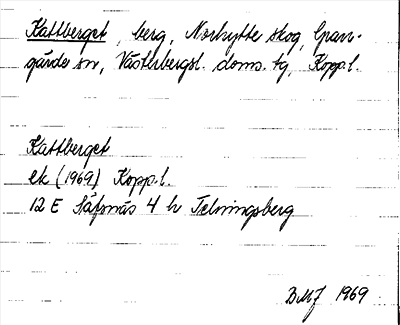 Kattberget, berg, Norhytte skog, Gran-
gärde sn, Västerbergsl. doms. tg, Kopp.l.
Kattberget
ek (1969) Kopp.l.
12 E Säfsnäs 4 h Telningsberg
DMJ 1969